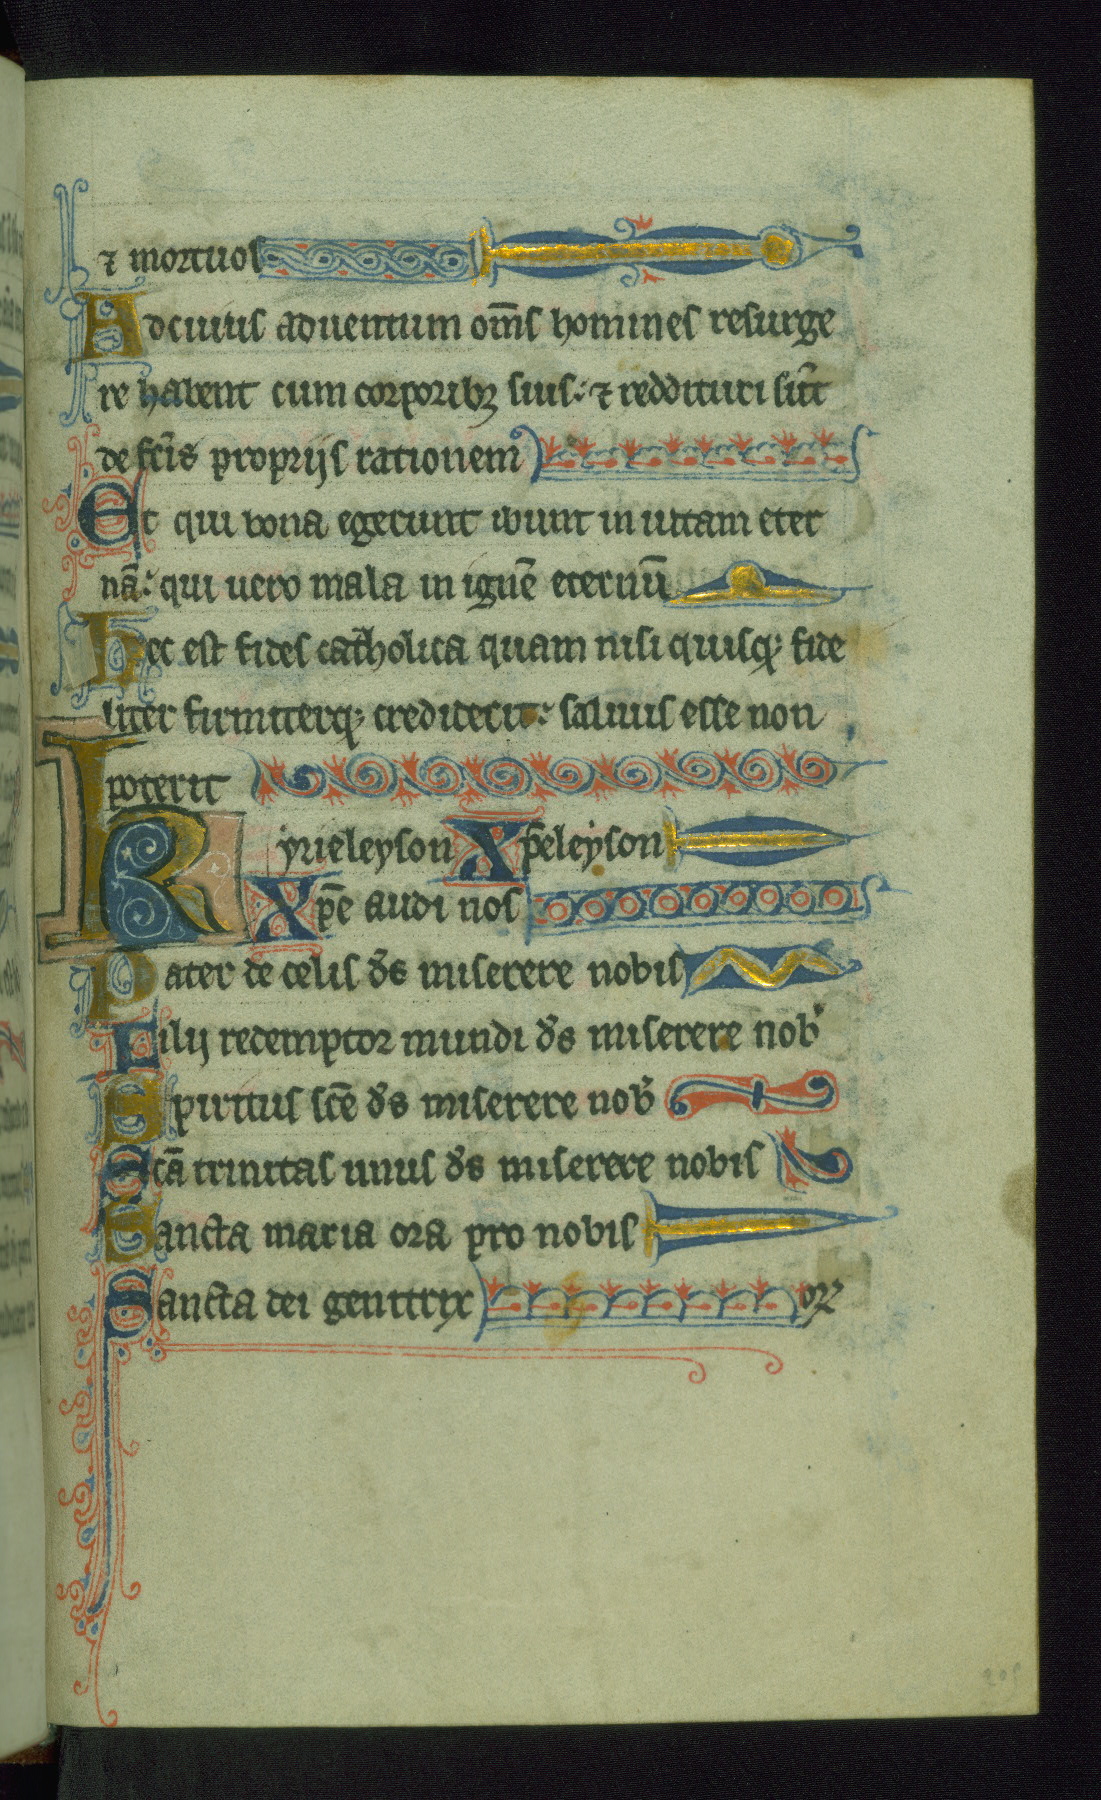 ⁊ mortuos
Ad cuius aduentum om̅s homines resurge
re habent cum corporibꝫ suis: ⁊ reddituri su̅t
de fc̅is proprijs rationem
Et qui bona egerunt ibunt in uitam eter
na̅: qui uero mala in igne̅ eternu̅
Hec est fides catholica quam nisi quisqꝫ fide
liter firmiterqꝫ crediderit: saluus esse non
poterit
Kyrieleyson Xp̅eleyson
Xp̅e audi nos
Pater de celis d̅s miserere nobis
Filij redemptor mundi d̅s miserere nob'
Spiritus sc̅e d̅s miserere nob'
Sca̅ trinitas unus d̅s miserere nobis
Sancta maria ora pro nobis
Sancta dei genitrix or'
205